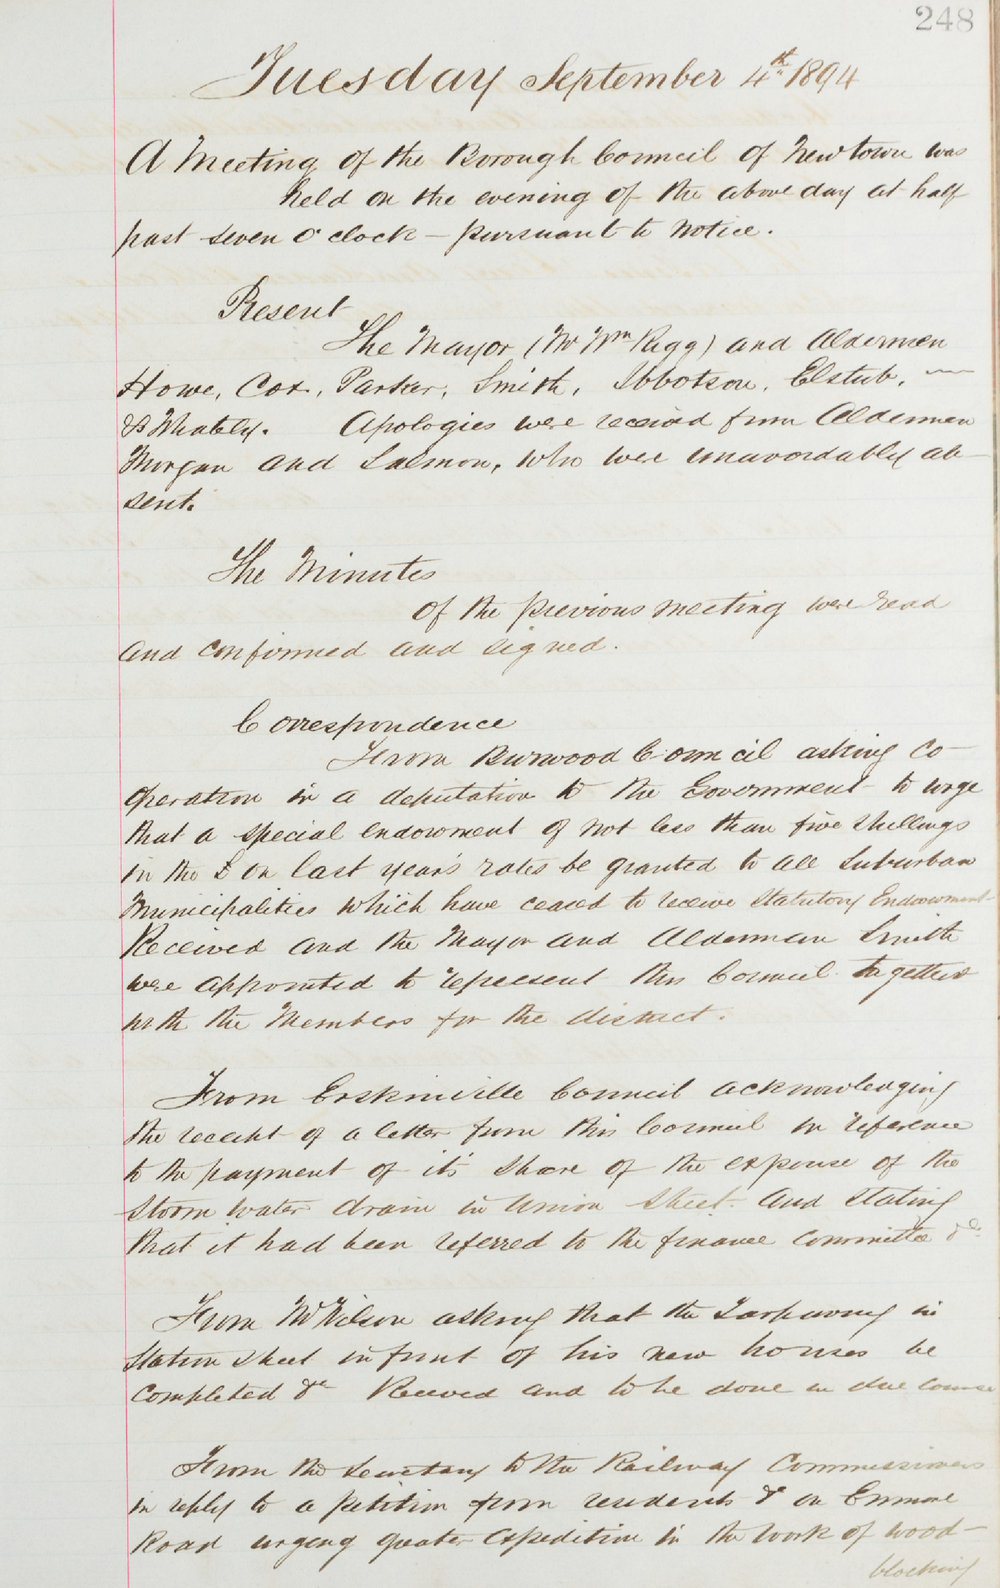 248
Tuesday September 4th 1894
A Meeting of the Borough Council of Newtown was
held on the evening of the above day at half
past seven o'clock – pursuant to notice.
Present
The Mayor (Mr Wm Rigg) and Aldermen
Howe, Cox, Parker, Smith, Ibbotson, Elstub, —
& Whately. Apologies were received from Aldermen
Morgan and Salmon, who were unavoidably ab-
sent.
The Minutes
of the previous meeting were read
and confirmed and signed.
Correspondence
From Burwood Council asking co-
operation in a deputation to the Government to urge
that a special endowment of not less than five shillings
in the £ on last year's rates be granted to all Suburban
Municipalities which have ceased to receive Statutory Endowment
Received and the Mayor and Alderman Smith
were appointed to represent this Council together
with the Members for the district.
From Erskinville Council acknowledging
the receipt of a letter from this Council in reference
to the payment of it's share of the expense of the
storm water drain in Union Street and stating
that it had been referred to the finance Committee &c
From Mr Wilson asking that the Tarpaving in
Station Street in front of his new houses be
completed &c Received and to be done in due course
From the Secretary to the Railway Commissioners
in reply to a petition from residents & on Enmore
Road urging greater expedition in the work of wood-
blocking